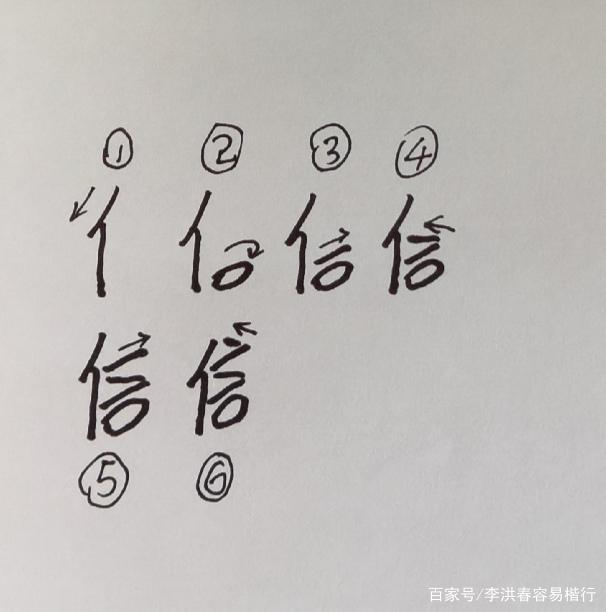 ① ② ③ ④
亻 信 信 信
信 信
⑤ ⑥
百家号/李洪春容易楷行